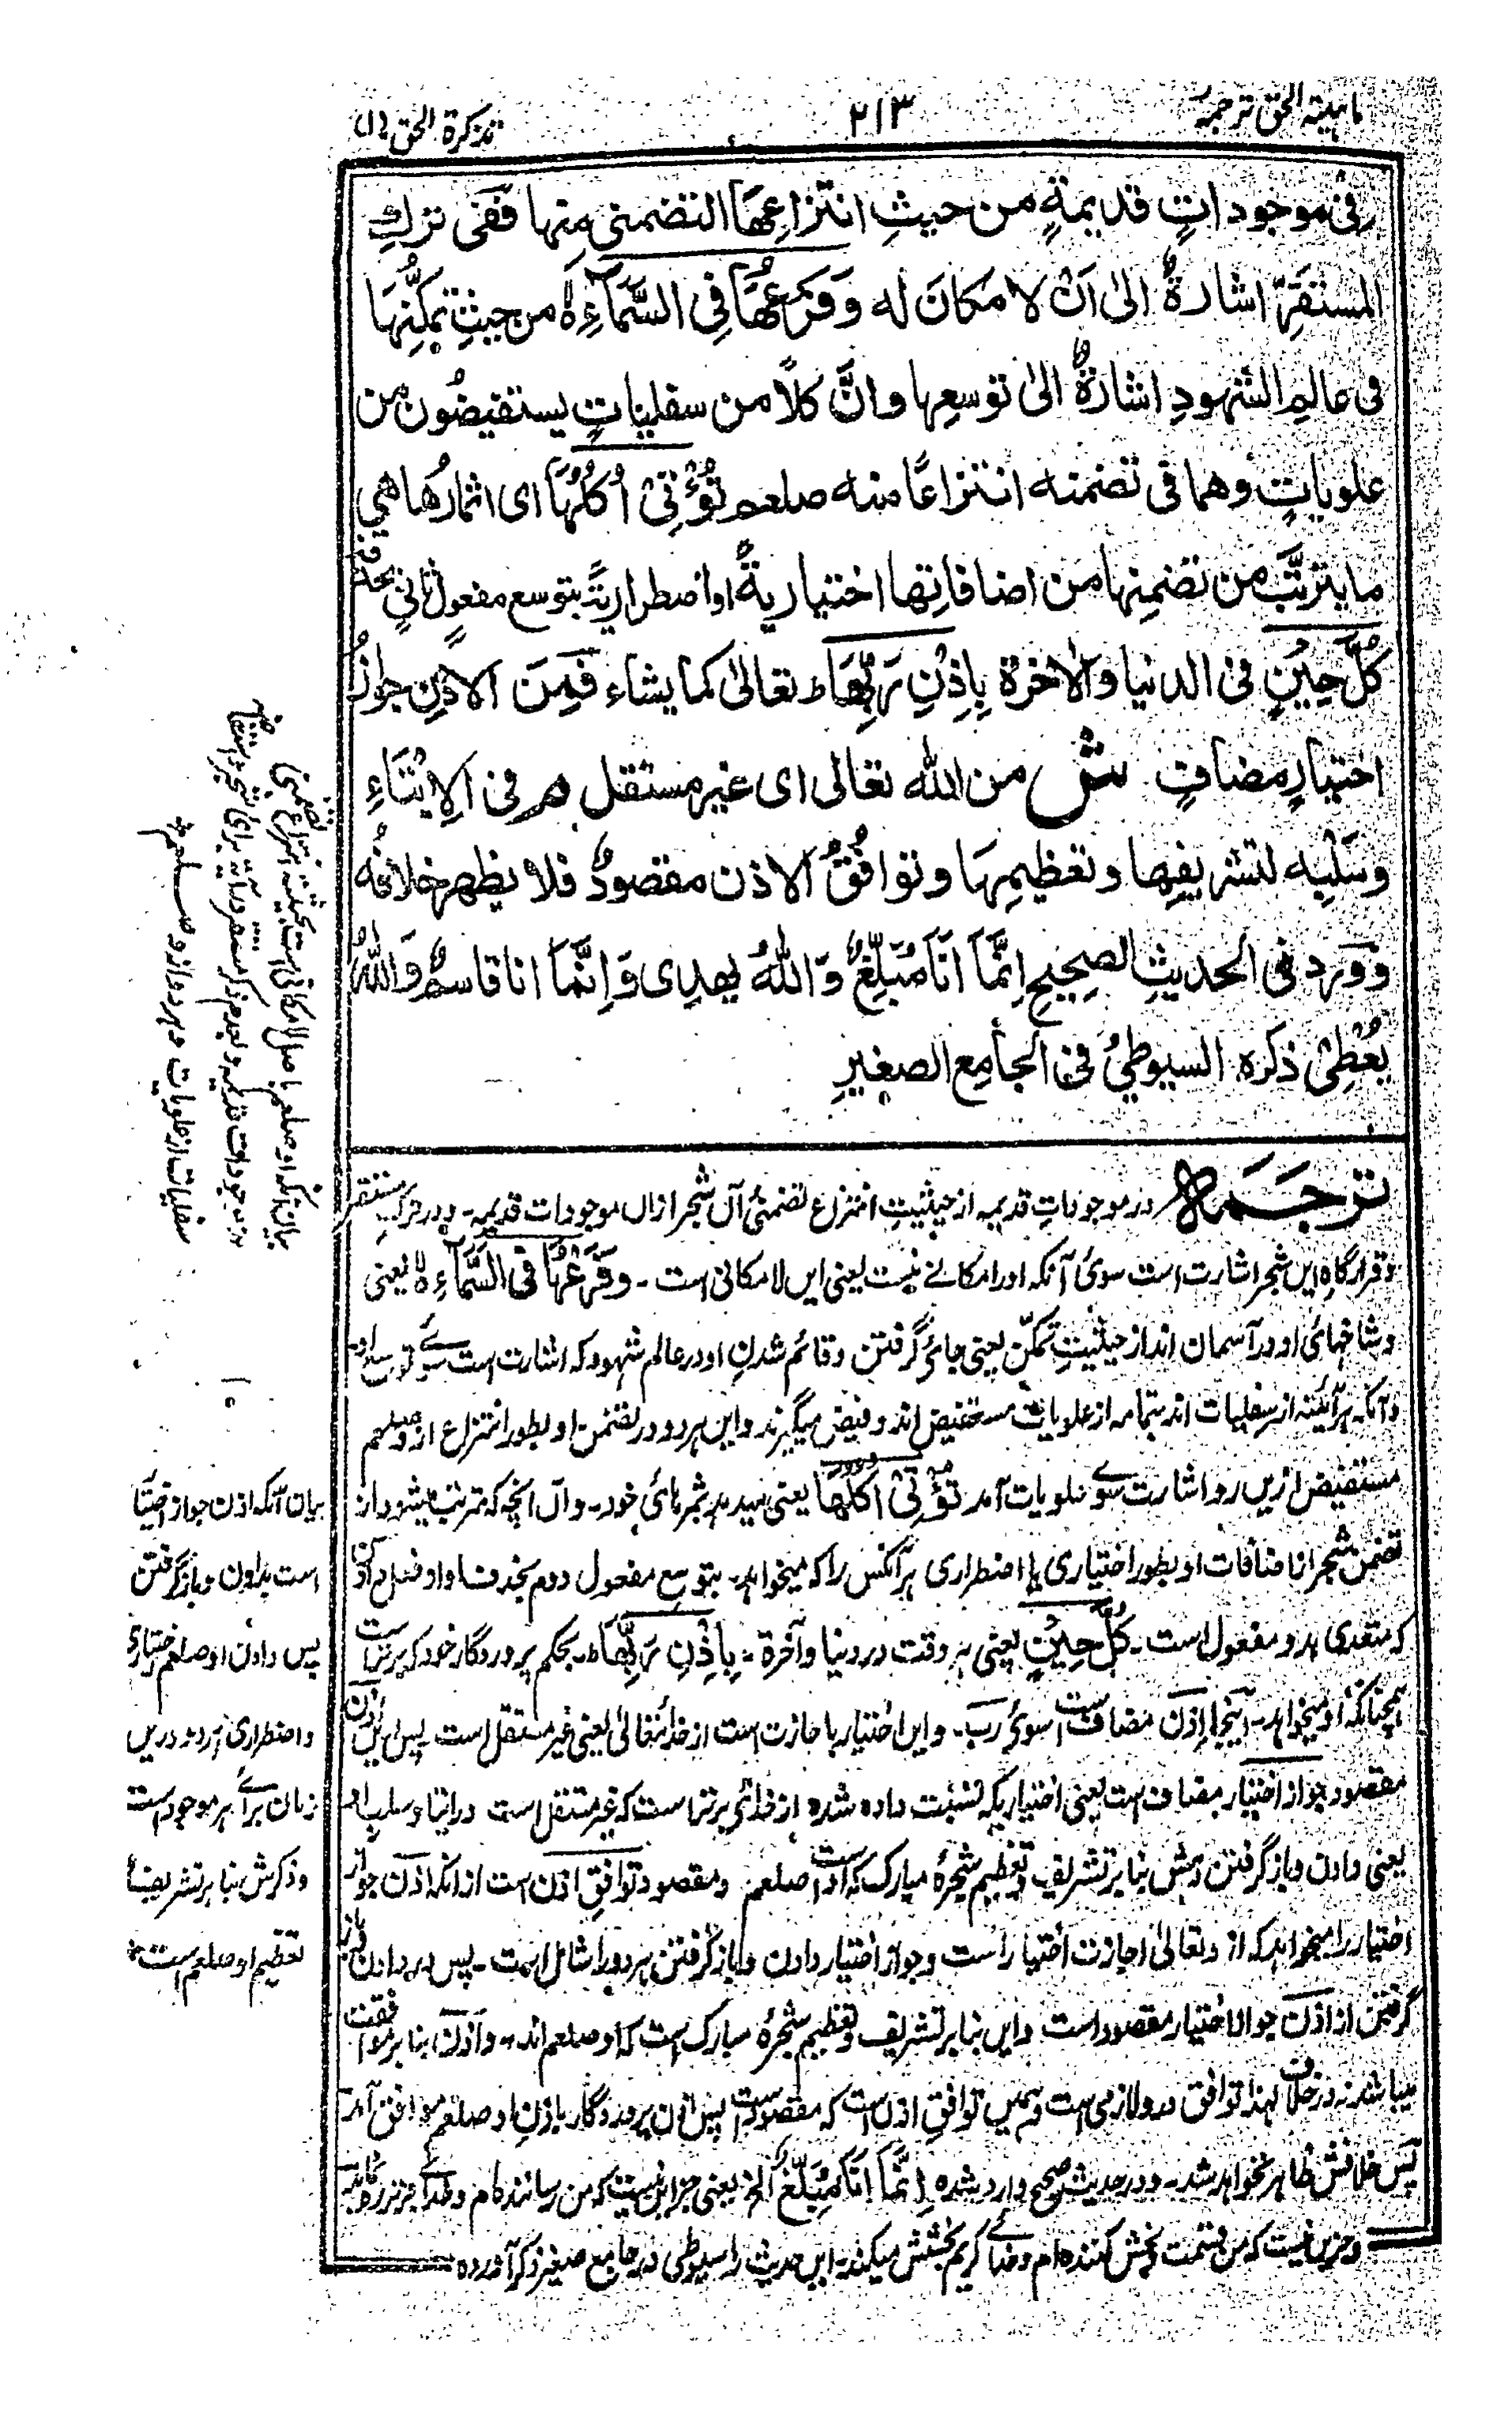 ماہیۃ الحق ترجمہ ٢١٣ تذکرۃ الحق (١)
فی موجوداتٍ قدیمةٍ من حیثِ انتزاعِهَا التضمنی مِنها فَفی ترکِ
المستقَرِّ اشارةٌ الیٰ اَنْ لا مکانَ له وَفَرْعُهَا فِی السَّمَآءِ لا من حیثِ تمکُّنِهَا
فی عالمِ الشهودِ اشارةٌ الیٰ توسعِها وانَّ کلاًّ من سفلیاتٍ یستفیضُون من
علویاتٍ وهما فی تضمنه انتزاعًا منه صلعم تُؤْتِیْ اُکُلَهَا ای اثمارُها هی
ما یترتَّب من تضمنِها من اضافاتِها اختیاریةً او اضطراریةً بتوسع مفعولٍ ثانٍ
کُلَّ حِیْنٍ فی الدنیا والاٰخرة بِاِذْنِ رَبِّهَا ط تعالیٰ کما یشاء فَمِنَ الاذنِ جوازُ
اختیارٍ مضافٍ ش من الله تعالی ای غیر مستقل هر فی الاِیْتَاءِ
وسَلْبِه لتشریفِها وتعظیمِهَا وتوافُقُ الاذن مقصودٌ فلا یظهر خلافُه
وَوَرد فی الحدیثِ الصحیحِ اِنَّمَا اَنَا مُبَلِّغٌ وَاللهُ یهدِی وَاِنَّمَا انا قاسمٌ وَاللهُ
یُعْطِیْ ذکره السیوطیُ فی الجامِعِ الصغیرِ
ترجمہ در موجوداتِ قدیمہ از حیثیتِ انتزاع تضمنیٔ آں شجر ازاں موجودات قدیمہ۔ ودر ترکِ مستقر
وقرارگاہِ ایں شجر اشارت است سوئ آنکہ اورا مکانے نیست یعنی ایں لامکانی است۔ وَفَرْعُهَا فِی السَّمَآءِ لا یعنی
وشاخہائ او در آسمان اند از حیثیتِ تمکّن یعنی جائ گرفتن وقائم شدنِ او در عالم شہود کہ اشارت است سوئے توسع او
وآنکہ ہر آئینہ از سفلیات اند بتمامہ از علویات مستفیض اند وفیض میگیرند واین ہر دو در تضمن او بطور انتزاع از وصلعم
مستفیض ازیں رو اشارت سوئے علویات آمد تُؤْتِیْ اُکُلَهَا یعنی میدہد ثمرہائ خود۔ وآں آنچہ کہ مترتب میشود از
تضمن شجر از اضافات او بطور اختیاری یا اضطراری ہر آنکس را کہ میخواہد۔ بتوسع مفعول دوم بحذف
کہ متعدی بدو مفعول است۔ کُلَّ حِیْنٍ یعنی ہر وقت در دنیا وآخرة۔ بِاِذْنِ رَبِّهَا ط بحکم پروردگار خود کہ برتر است
ہمچنانکہ او میخواہد۔ اینجا اِذن مضاف است سوئ رب۔ وایں اختیار باجازت است از خدائ تعالیٰ یعنی غیر مستقل است۔ پس ازیں اذن
مقصود جواز اختیار مضاف است یعنی اختیاریکہ نسبت دادہ شدہ از خدائ برتر است کہ غیر مستقل است در ایتا وسلب او
یعنی دادن وباز گرفتن بنا بر تشریف وتعظیم شجرۂ مبارک کہ او است صلعم ومقصود توافقِ اذن است از آنکہ اذن جواز
اختیار را میخواہد کہ از وتعالیٰ اجازت اختیار است وجواز اختیار دادن وباز گرفتن ہر دو را شامل است۔ پس در دادن وباز
گرفتن از اذن جواز اختیار مقصود است وایں بنا بر تشریف وتعظیم شجرۂ مبارک است کہ او صلعم اند۔ واذن بنا بر موافقت
میباشد نہ در خلاف لہذا توافق درو لازمی است وہمیں توافقِ اذن است کہ مقصود است پس اذن پروردگار باذنِ او صلعم موافق آمد
پس خلافش ظاہر نخواہد شد۔ ودر حدیث صحیح وارد شدہ اِنَّمَا اَنَا مُبَلِّغٌ الخ یعنی جز ایں نیست کہ من رسانندہ ام وخدائے برتر
وجز ایں نیست کہ من قسمت وبخش کنندہ ام وخدائے کریم بخشش میکند۔ ایں حدیث را سیوطی در جامع صغیر ذکر آوردہ
بیان آنکہ او صلعم باصل لامکانی است بحیثیت انتزاع تضمنی
سفلیات از علویات وہر دو از و صلعم
بیان آنکہ اذن جواز اختیار
است بدادن وباز گرفتن
پس دادن او صلعم اختیاری
واضطراری ہر دو دریں
زمان برائے ہر موجود است
وذکرش بنا بر تشریف
تعظیم او صلعم است